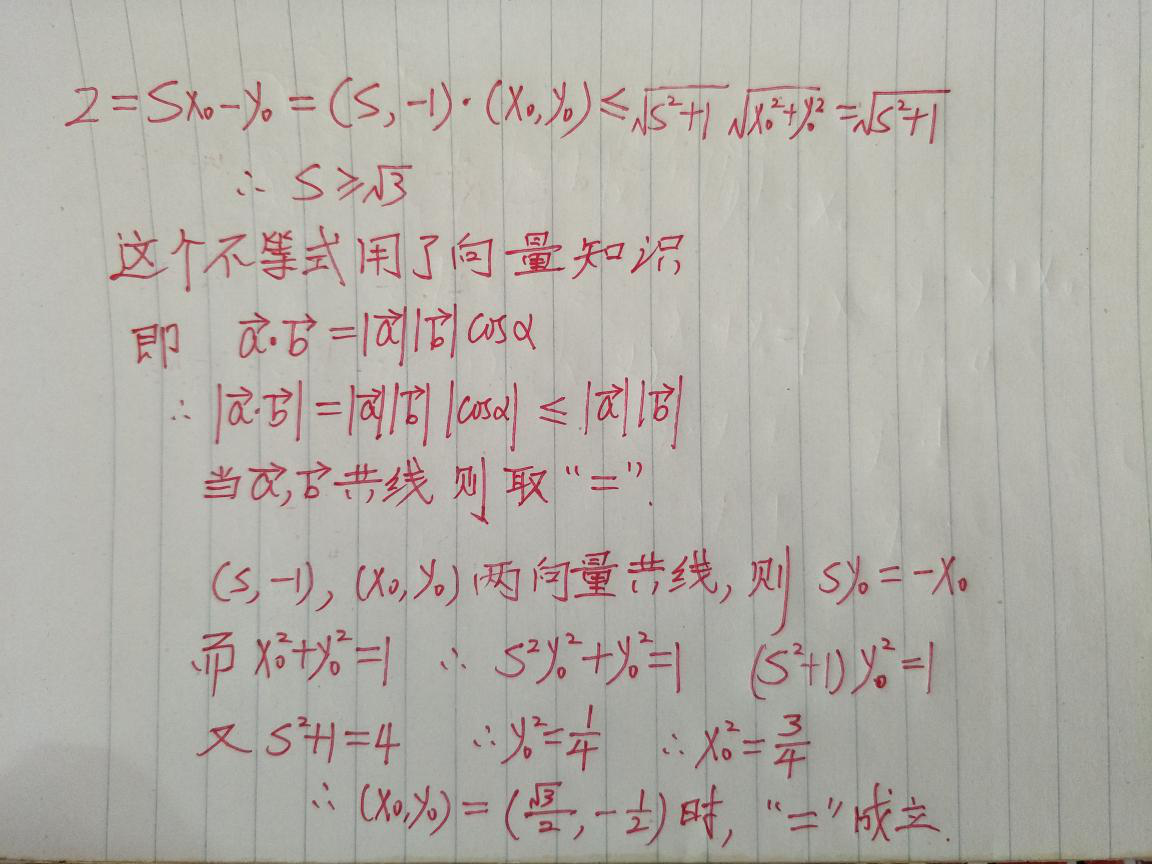 2=Sx₀-y₀=(S,-1)·(x₀,y₀)≤√(S²+1) √(x₀²+y₀²)=√(S²+1)
∴ S≥√3
这个不等式用了向量知识
即 a⃗·b⃗=|a⃗||b⃗|cosα
∴ |a⃗·b⃗|=|a⃗||b⃗||cosα|≤|a⃗||b⃗|
当a⃗,b⃗共线则取“=”.
(S,-1),(x₀,y₀)两向量共线,则 Sy₀=-x₀
而 x₀²+y₀²=1 ∴ S²y₀²+y₀²=1 (S²+1)y₀²=1
又 S²+1=4 ∴y₀²=1/4 ∴x₀²=3/4
∴(x₀,y₀)=(√3/2,-1/2)时,“=”成立.